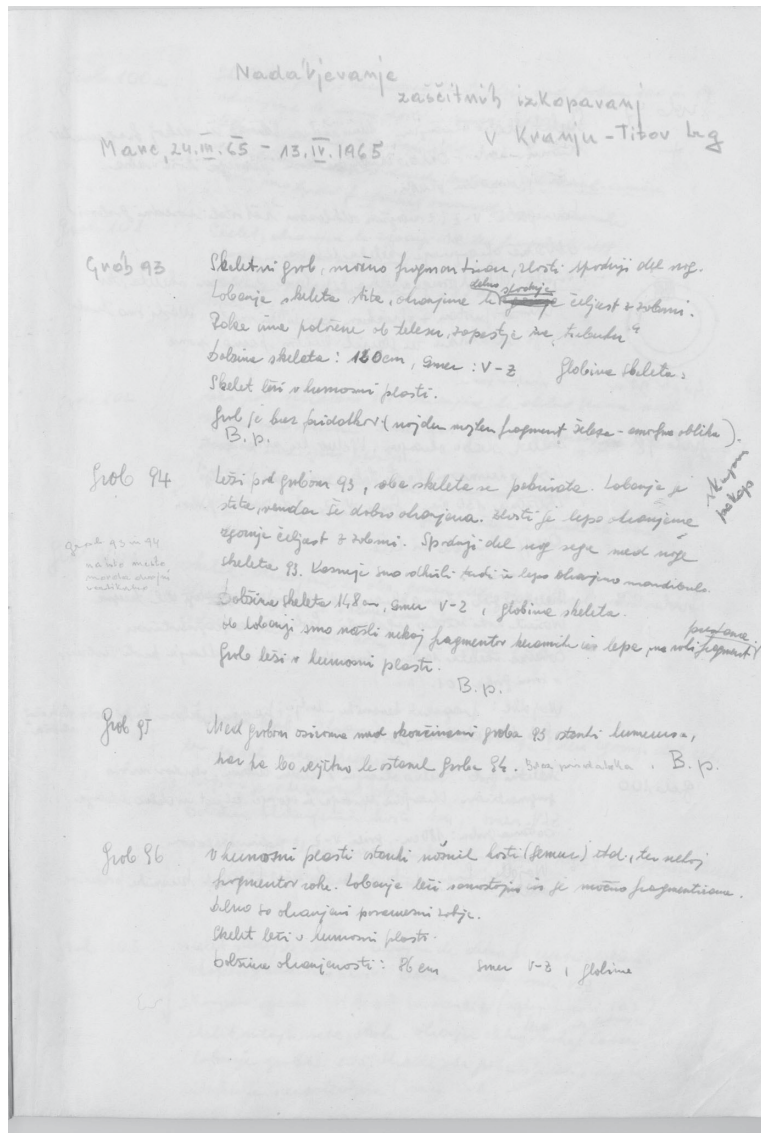 Nadaljevanje
zaščitnih izkopavanj
v Kranju - Titov trg
Marec, 24.III.65 - 13.IV.1965
Grob 93
Skeletni grob, močno fragmentiran, zlasti spodnji del nog.
delno spodnja
Lobanja skeleta strta, ohranjena le čeljust z zobmi.
Roke ima položene ob telesu, zapestje na "trebuhu"
Dolžina skeleta: 120 cm, smer: V-Z Globina skeleta:
Skelet leži v humosni plasti.
Grob je brez pridatkov (najden majhen fragment železa - amorfna oblika).
B.p.
Grob 94
Leži pod grobom 93, oba skeleta se pokrivata. Lobanja je
strta, vendar še dobro ohranjena. Zlasti je lepo ohranjena
zgornja čeljust z zobmi. Spodnji del nog sega med noge
skeleta 93. Kasneje smo odkrili tudi še lepo ohranjeno mandibulo.
Dolžina skeleta 148 cm, smer V-Z, globina skeleta.
Ob lobanji smo našli nekaj fragmentov keramike in lepa, na roki fragment
Grob leži v humosni plasti.
B.p.
grob 93 in 94
Grob 95
Med grobom oziroma med okončinami groba 93 ostanki humerusa,
kar pa bo verjetno le ostanek groba 94. Brez pridatka. B.p.
Grob 96
V humosni plasti ostanki nožnih kosti (femur) itd., ter nekaj
fragmentov roke. Lobanja leži samostojno in je močno fragmentirana.
Delno so ohranjeni posamezni zobje.
Skelet leži v humosni plasti.
Dolžina ohranjenosti: 86 cm smer V-Z, globina